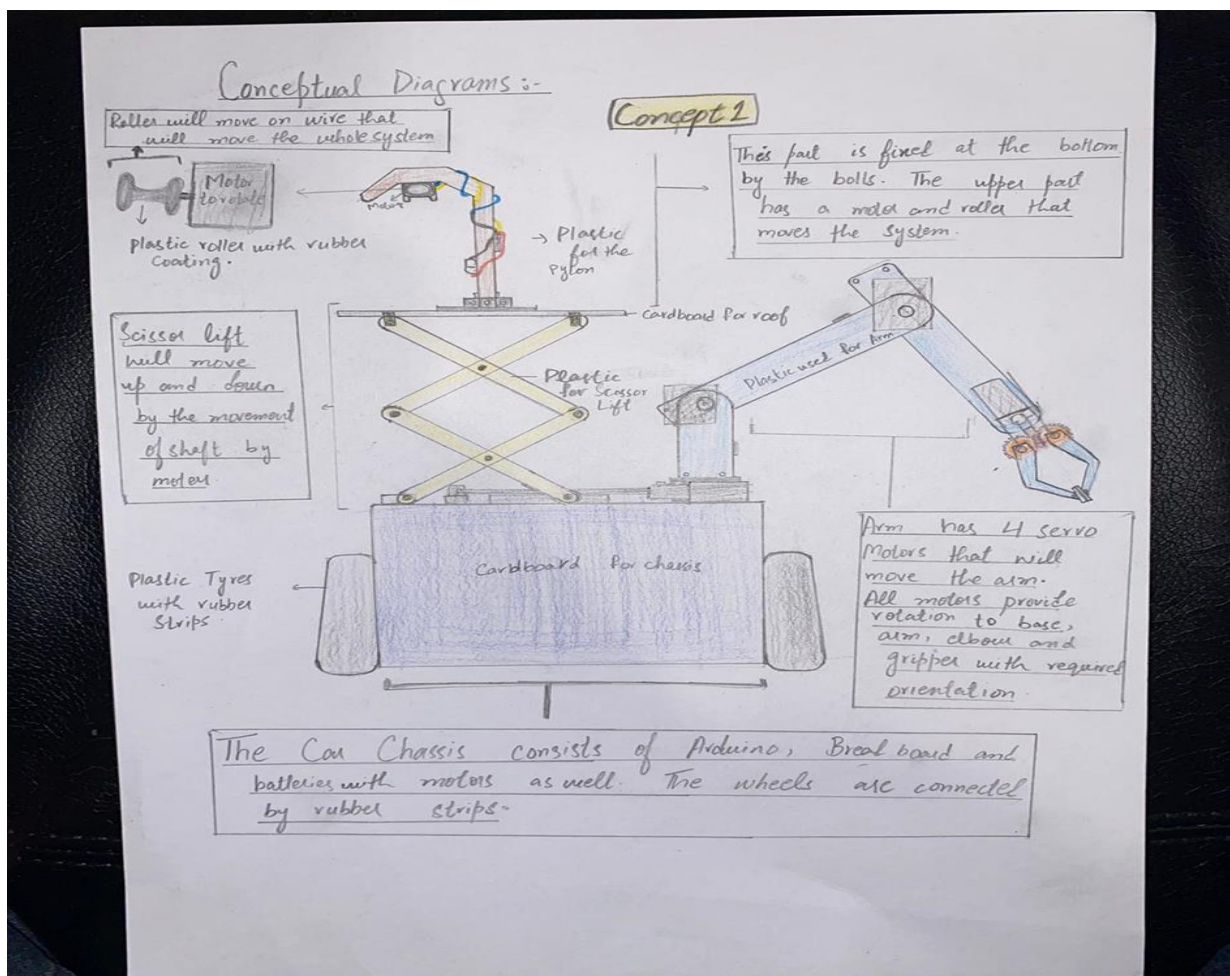 Conceptual Diagrams :-
Concept 1
Roller will move on wire that
will move the whole system
Motor
to rotate
Plastic roller with rubber
coating.
Motor
→ Plastic
for the
Pylon
This part is fixed at the bottom
by the bolls. The upper part
has a motor and roller that
moves the system.
Cardboard for roof
Scissor lift
will move
up and down
by the movement
of shaft by
motor
Plastic
for Scissor
Lift
Plastic used for Arm
Plastic Tyres
with rubber
Strips.
Cardboard for chassis
Arm has 4 servo
Motors that will
move the arm.
All motors provide
rotation to base,
arm, elbow and
gripper with required
orientation.
The Car Chassis consists of Arduino, Bread board and
batteries with motors as well. The wheels are connected
by rubber strips.